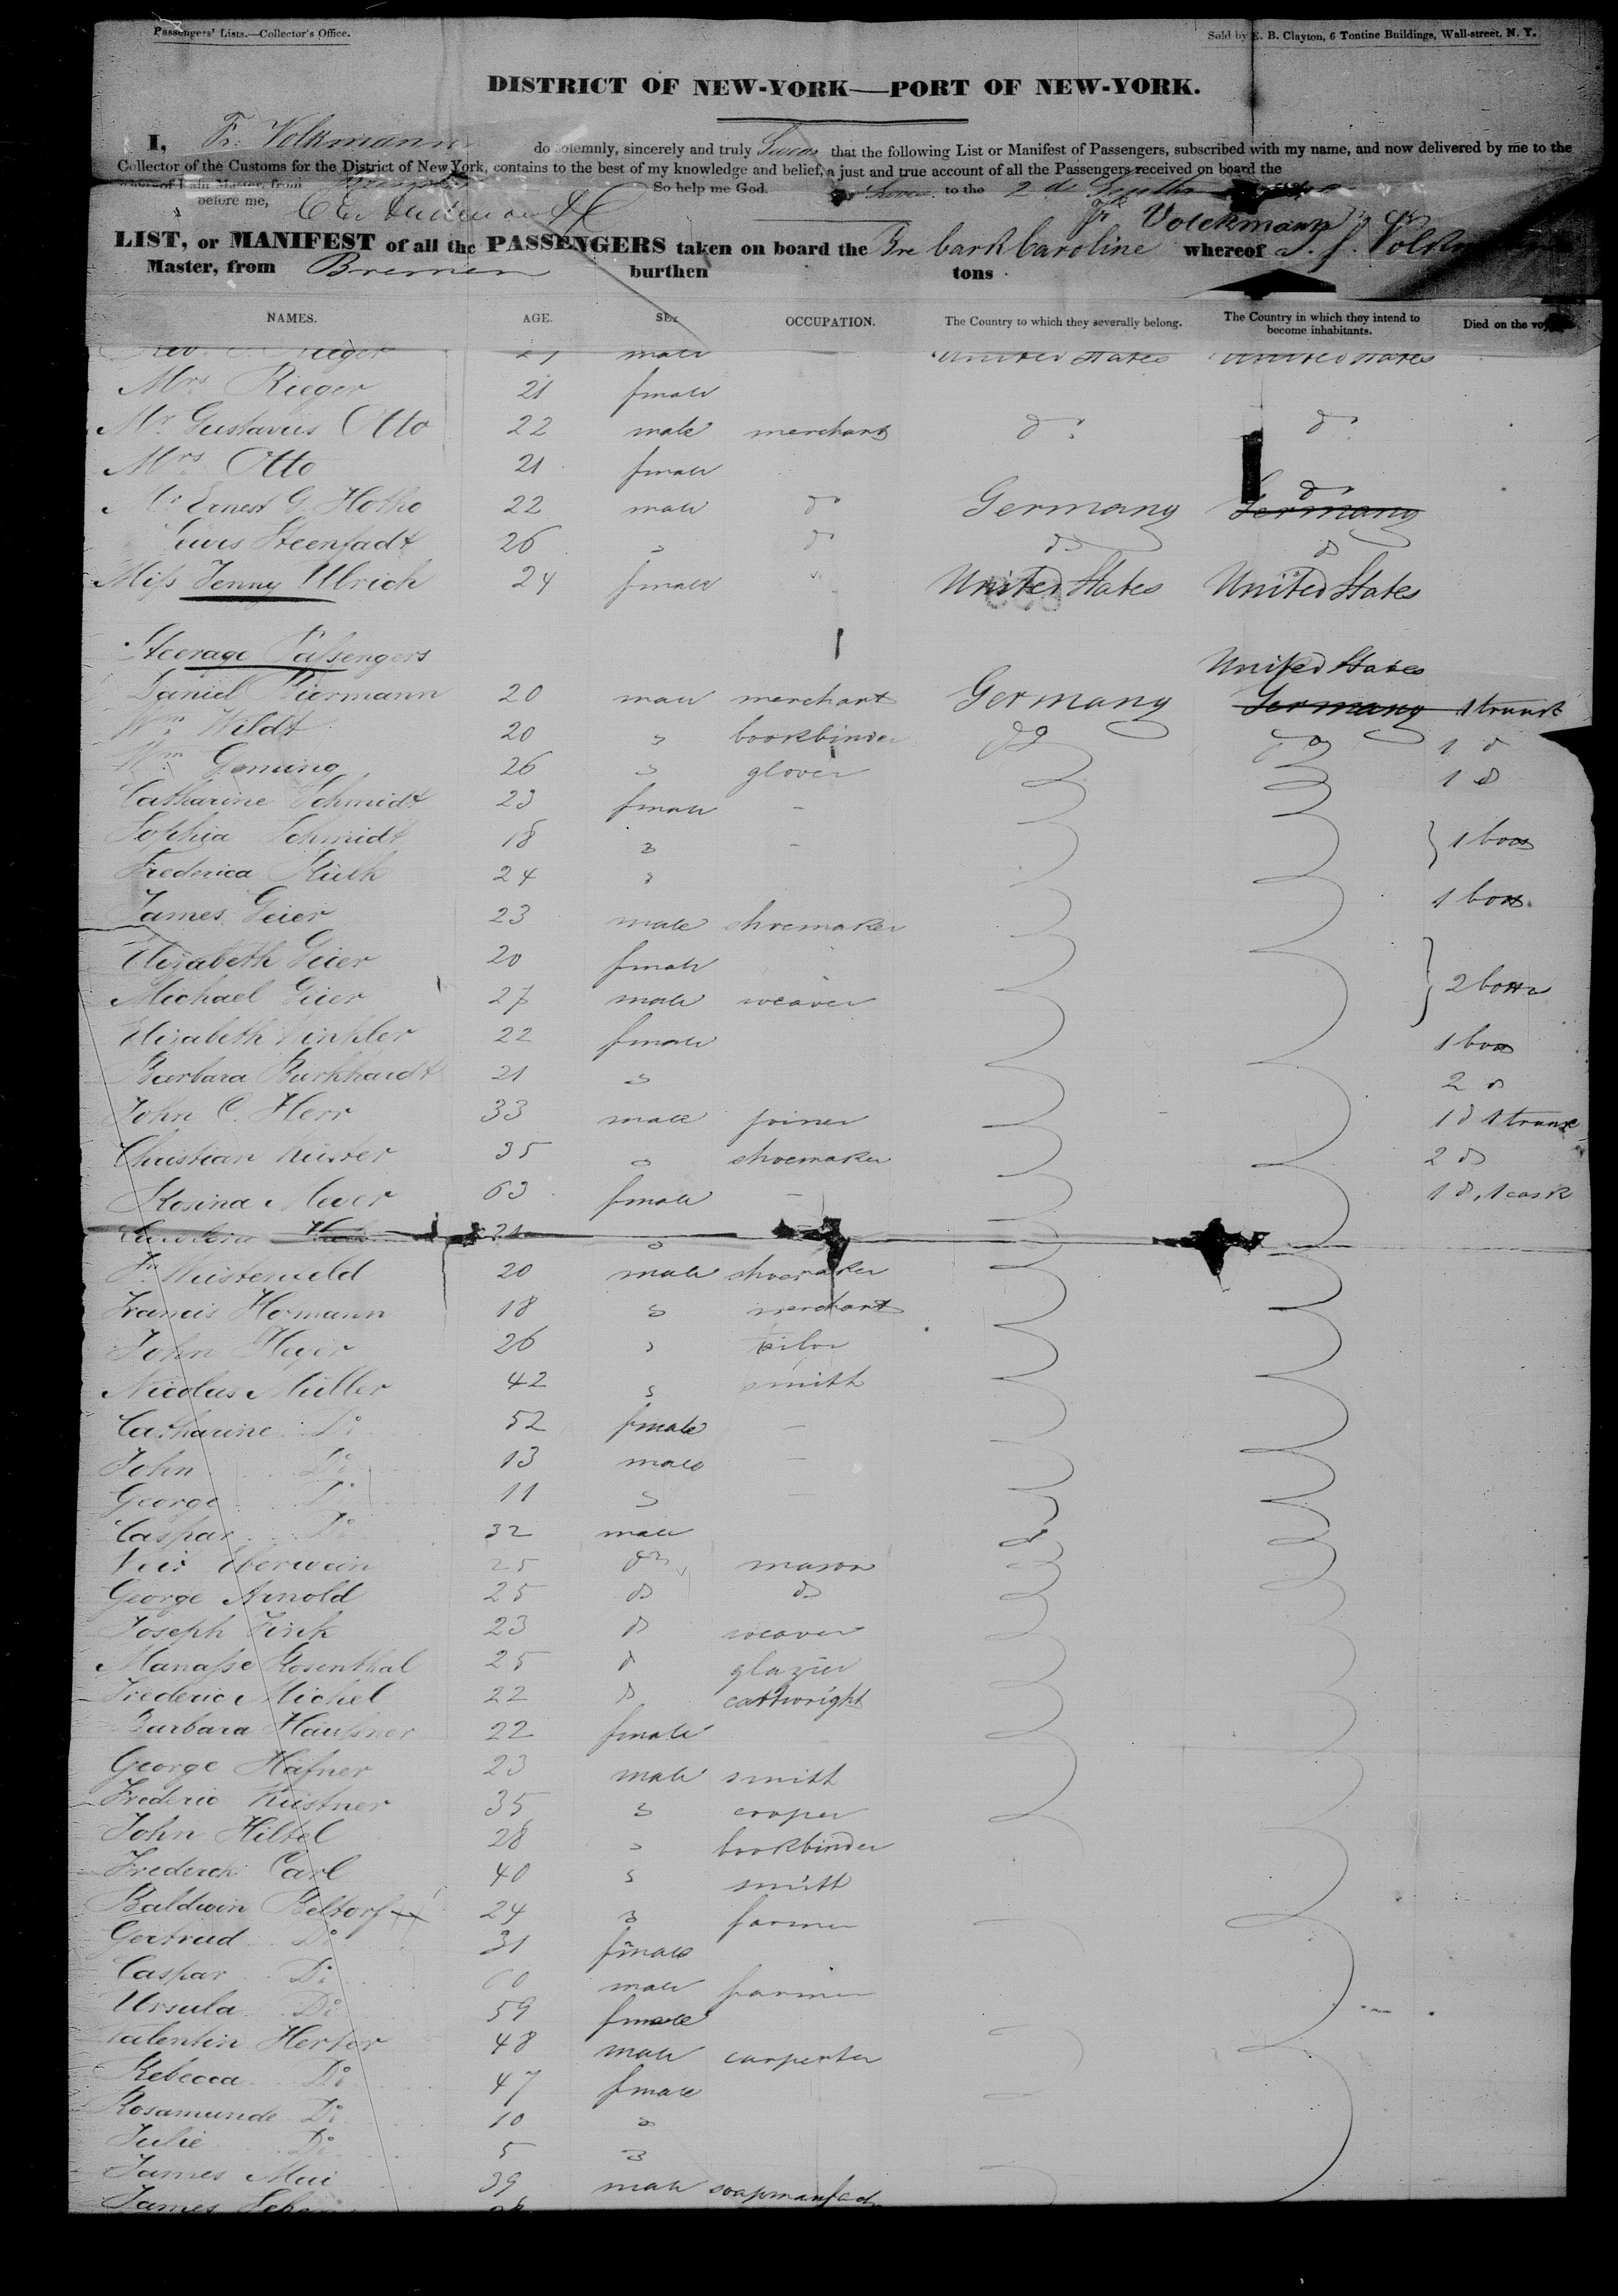 Passengers' Lists.—Collector's Office. Sold by E. B. Clayton, 6 Tontine Buildings, Wall-street, N. Y.
DISTRICT OF NEW-YORK—PORT OF NEW-YORK.
I, Fr. Volkmann do solemnly, sincerely and truly Swear that the following List or Manifest of Passengers, subscribed with my name, and now delivered by me to the
Collector of the Customs for the District of New York, contains to the best of my knowledge and belief, a just and true account of all the Passengers received on board the
whereof I am Master, from So help me God. to the 2d
before me, Fr Volckmann
LIST, or MANIFEST of all the PASSENGERS taken on board the Bre bark Caroline whereof
Master, from Bremen burthen tons
NAMES. AGE. SEX OCCUPATION. The Country to which they severally belong. The Country in which they intend to become inhabitants. Died on the
Rieger male United States United States
Mrs Rieger 21 female
Mr Gustavus Otto 22 male merchant do do
Mrs Otto 21 female
Mr Ernest G. Hotho 22 male do Germany Germany do
Steenfadt 26 " do do do
Miss Jenny Ulrich 24 female United States United States
Steerage Passengers
United States
Daniel Biermann 20 male merchant Germany Germany 1 trunk
Wm Wildt 20 " bookbinder do do 1 do
Wm 26 " glover 1 do
Catharine Schmidt 23 female -
Sophia Schmidt 18 " - 1 box
Frederica 24 "
1 box
James Geier 23 male shoemaker
Elizabeth Geier 20 female
Michael Geier 27 male weaver 2 boxes
Elizabeth Winkler 22 female 1 box
Barbara Burkhardt 21 " 2 do
John C. Herr 33 male joiner 1 do 1 trunk
Christian Küster 35 " shoemaker 2 do
Rosina Meyer 63 female - 1 do, 1 cask
21 "
Fr. Wüstenfeld 20 male shoemaker
Francis Homann 18 " merchant
John Heyer 26 " tailor
Nicolas Müller 42 " smith
Catharine Do 52 female -
John Do 13 male -
George Do 11 " -
Caspar Do 32 male
Veit Eberwein 25 do mason
George Arnold 25 do do
Joseph Fink 23 do weaver
Manasse Rosenthal 25 do glazier
Frederic Michel 22 do cartwright
Barbara Häussner 22 female
George Häfner 23 male smith
Frederic Küstner 35 " cooper
John Hiltel 28 " bookbinder
Frederick Carl 40 " smith
Baldwin Beltorf 24 " farmer
Gertrud Do 31 female
Caspar Do 60 male farmer
Ursula Do 59 female
Valentin Herter 48 male carpenter
Rebecca Do 47 female
Rosamunde Do 10 "
Julie Do 5 "
James Mai 39 male
James